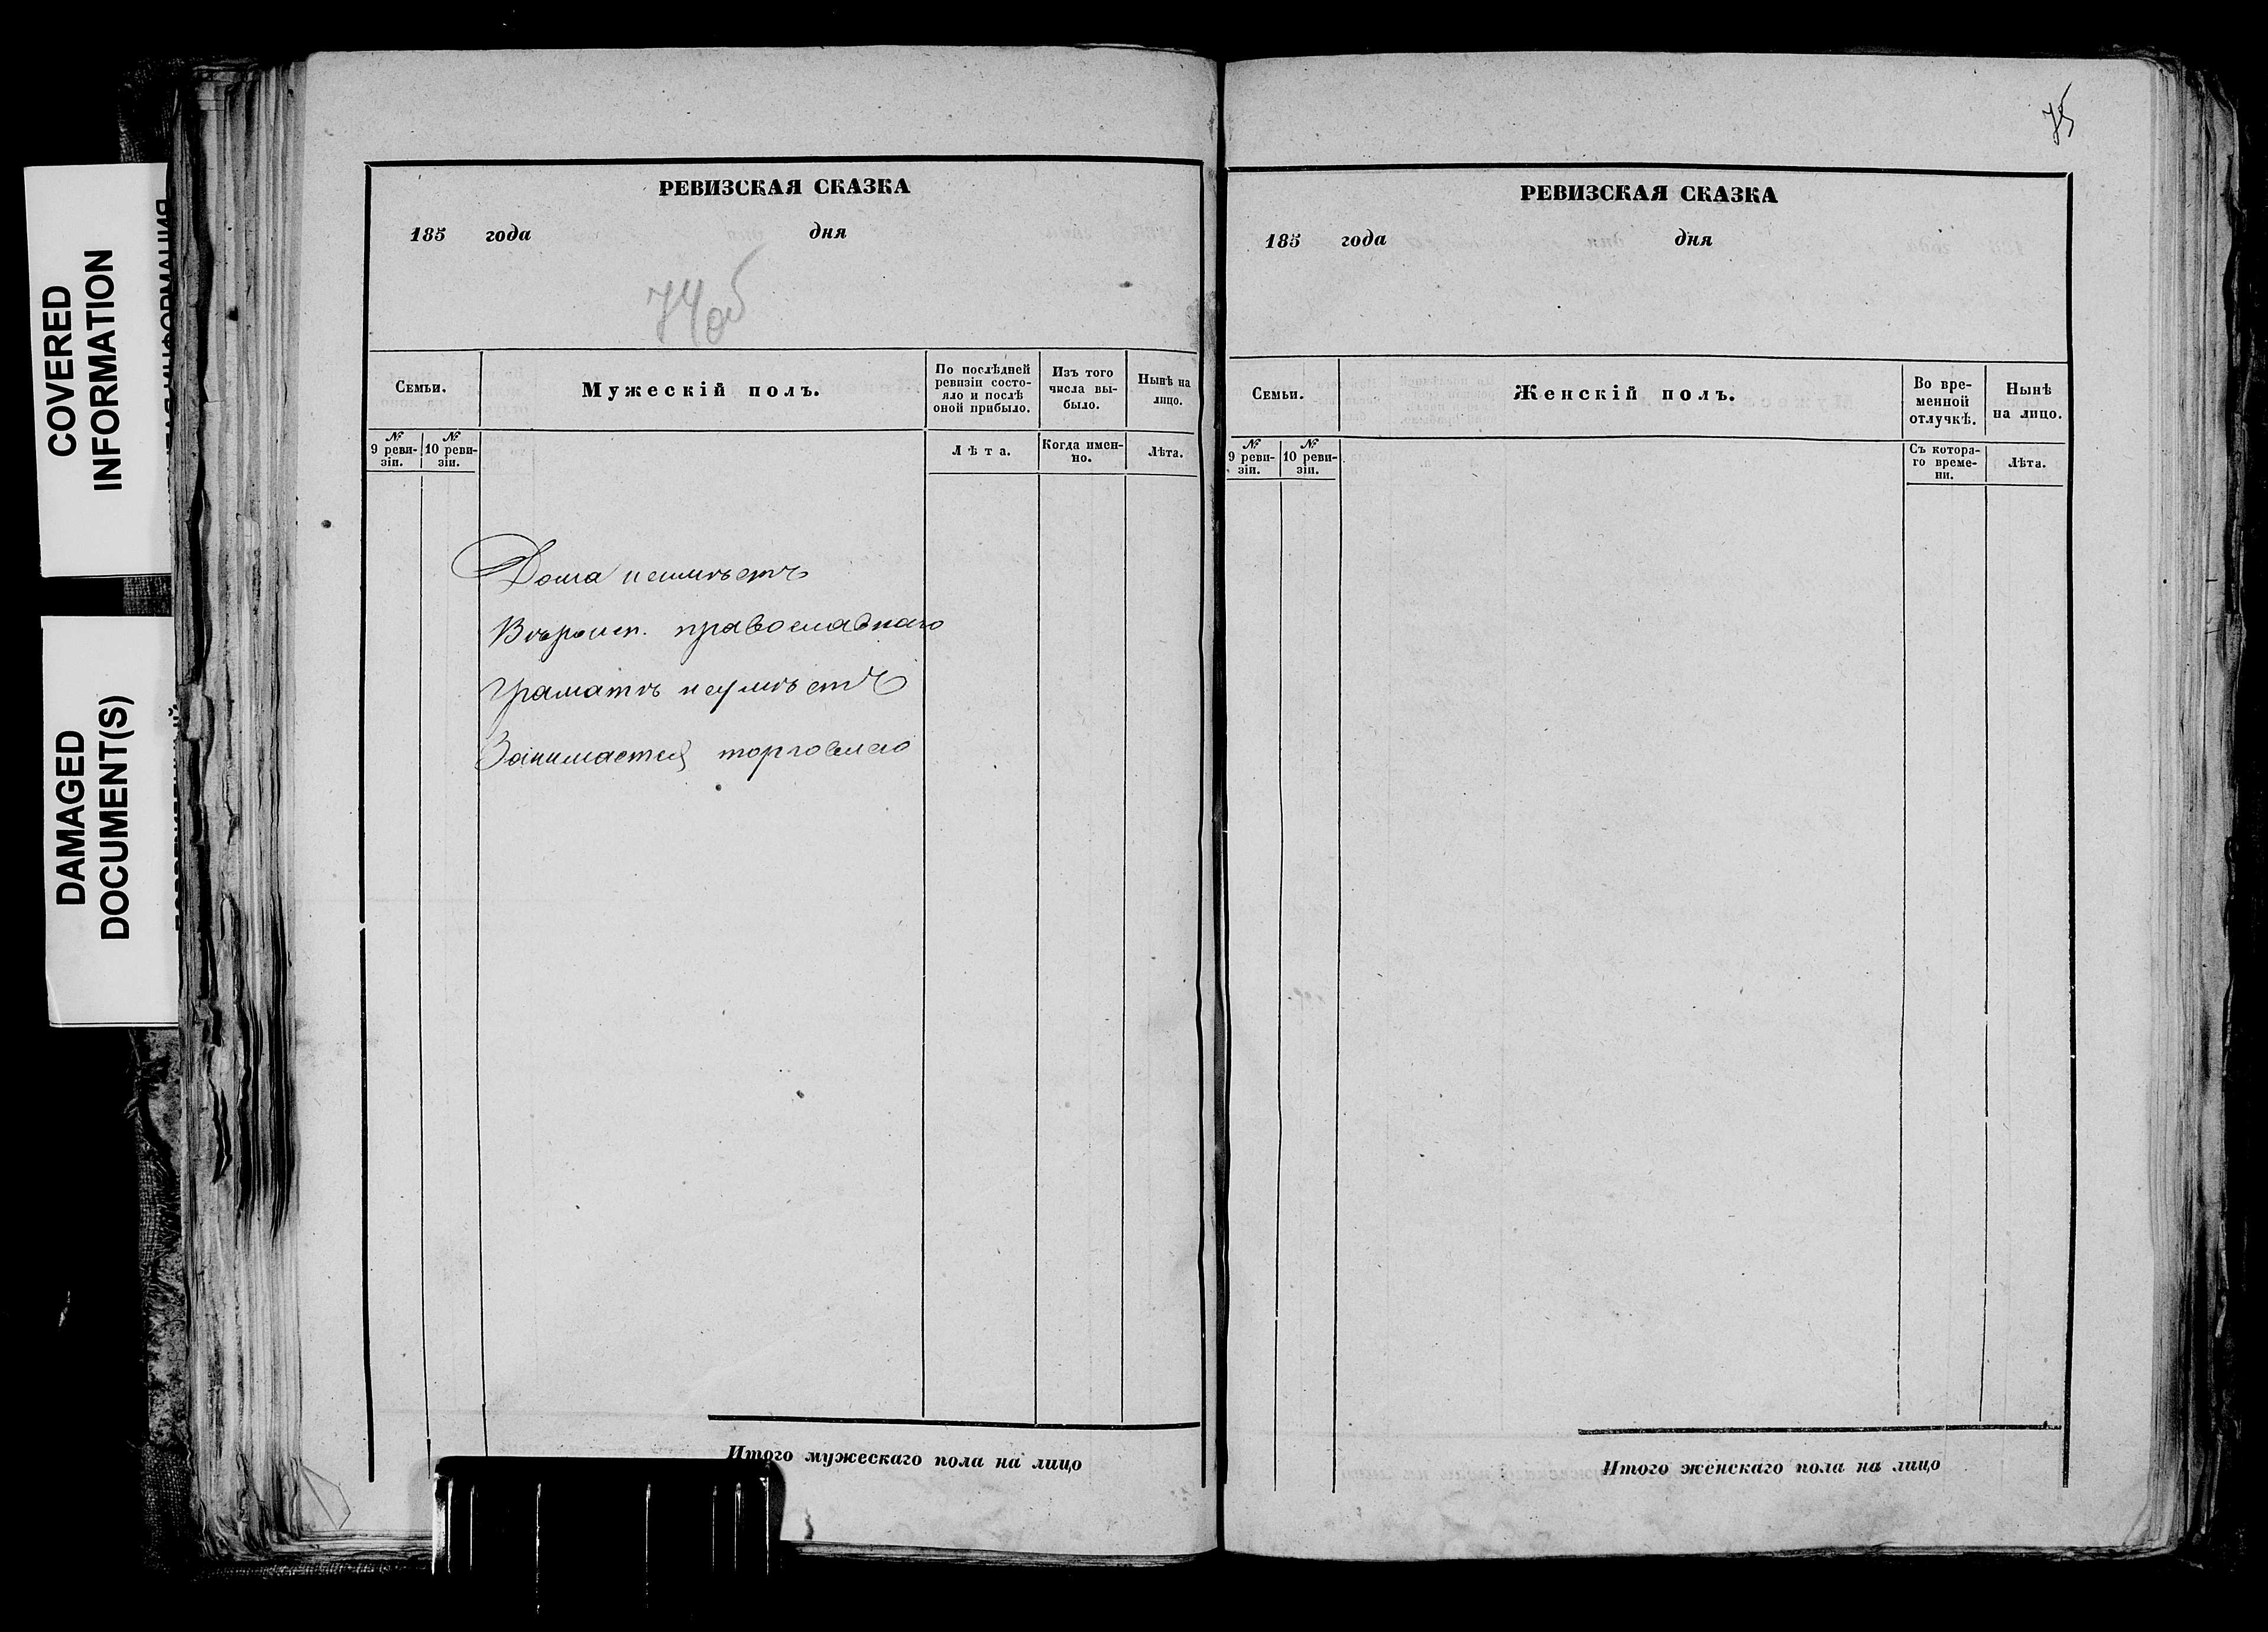 COVERED
INFORMATION
DAMAGED
DOCUMENT(S)
РЕВИЗСКАЯ СКАЗКА
185 года дня
74об
Семьи.
Мужескій полъ.
По послѣдней
ревизіи состо-
яло и послѣ
оной прибыло.
Изъ того
числа вы-
было.
Нынѣ на
лицо.
№
9 реви-
зіи.
№
10 реви-
зіи.
Лѣта.
Когда имен-
но.
Лѣта.
Дома неимѣетъ
Вѣроисп. православнаго
Граматѣ неумѣетъ
Занимается торговлею
Итого мужескаго пола на лицо
75
РЕВИЗСКАЯ СКАЗКА
185 года дня
Семьи.
Женскій полъ.
Во вре-
менной
отлучкѣ.
Нынѣ
на лицо.
№
9 реви-
зіи.
№
10 реви-
зіи.
Съ котора-
го време-
ни.
Лѣта.
Итого женскаго пола на лицо